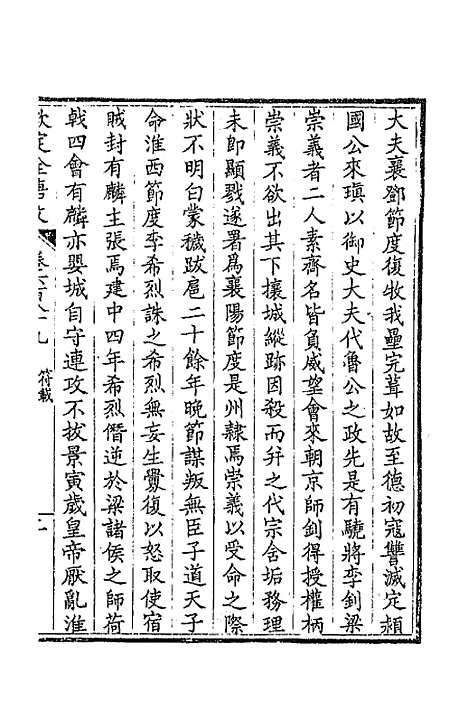 大夫襄鄧節度復牧我壘完葺如故至德初寇讐滅定頻
國公來瑱以御史大夫代魯公之政先是有驍將李釗梁
崇義者二人素齊名皆負威望會來朝京師釗得授權柄
崇義不欲出其下攘城縱跡因殺而幷之代宗舍垢務理
未卽顯戮遂署爲襄陽節度是州隸焉崇義以受命之際
狀不明白蒙穢跋扈二十餘年晚節謀叛無臣子道天子
命淮西節度李希烈誅之希烈無妄生釁復以怒取使宿
賊封有麟主張焉建中四年希烈僭逆於梁諸侯之師荷
戟四會有麟亦嬰城自守連攻不拔景寅歲皇帝厭亂淮
欽定全唐文
卷六百八十九
符載